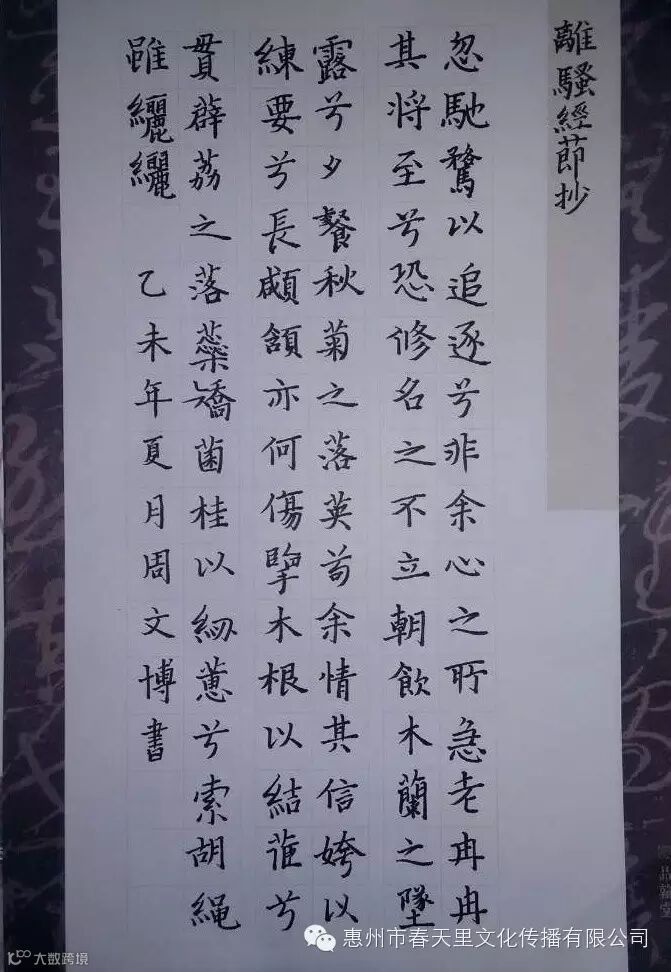 離騷經莭抄
忽馳騖以追逐兮非余心之所急老冉冉
其将至兮恐修名之不立朝飲木蘭之墜
露兮夕餐秋菊之落英苟余情其信姱以
練要兮長顑頷亦何傷擥木根以結茝兮
貫薜荔之落蘂矯菌桂以紉蕙兮索胡繩
雖纚纚 乙未年夏月周文博書
惠州市春天里文化传播有限公司
大数跨境